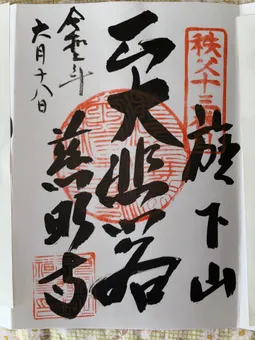 秩父十三番
旗下山
正大悲
慈眼寺
令和三年
六月十八日